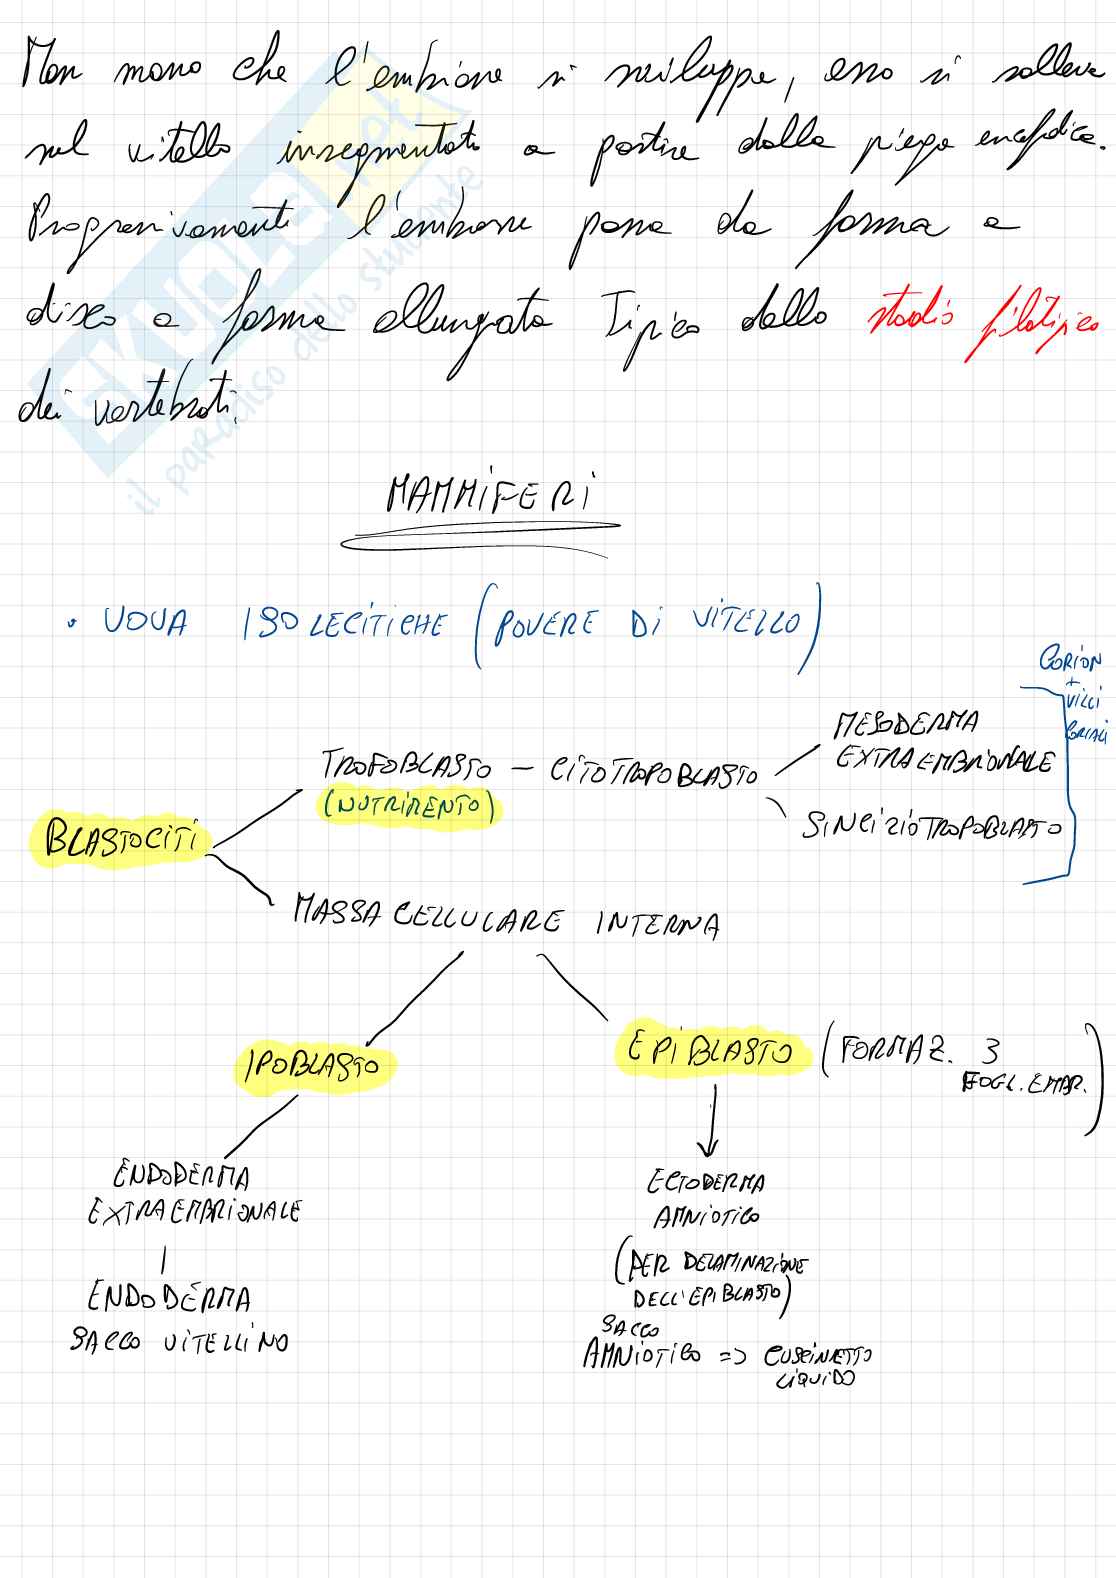 Man mano che l'embrione si sviluppa, esso si solleva
sul vitello insegmentato a partire dalla piega encefalica.
Progressivamente l'embrione passa da forma a
disco a forma allungata Tipica dello stadio filotipico
dei vertebrati.
MAMMIFERI
• UOVA ISOLECITICHE (POVERE DI VITELLO)
CORION
+
VILLI
CORIALI
MESODERMA
EXTRAEMBRIONALE
TROFOBLASTO – CITOTROPOBLASTO
(NUTRIMENTO)
SINCIZIOTROPOBLASTO
BLASTOCITI
MASSA CELLULARE INTERNA
IPOBLASTO
EPIBLASTO (FORMAZ. 3
FOGL. EMBR.)
ENDODERMA
EXTRAEMBRIONALE
ENDODERMA
SACCO VITELLINO
ECTODERMA
AMNIOTICO
(PER DELAMINAZIONE
DELL'EPIBLASTO)
SACCO
AMNIOTICO => CUSCINETTO
LIQUIDO
SKUOLA.net
il paradiso dello studente